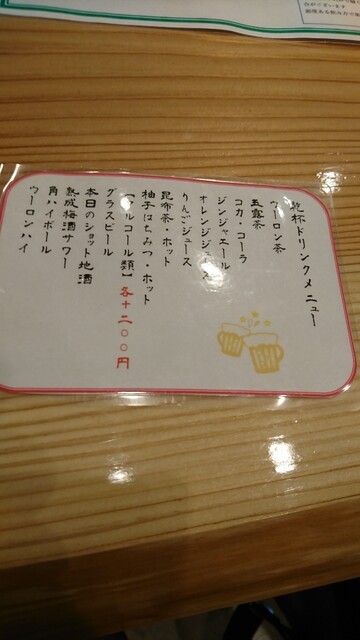 乾杯ドリンクメニュー
ウーロン茶
玉露茶
コカ・コーラ
ジンジャエール
オレンジジュース
りんごジュース
昆布茶・ホット
柚子はちみつ・ホット
【アルコール類】各+二〇〇円
グラスビール
本日のショット地酒
熟成梅酒サワー
角ハイボール
ウーロンハイ